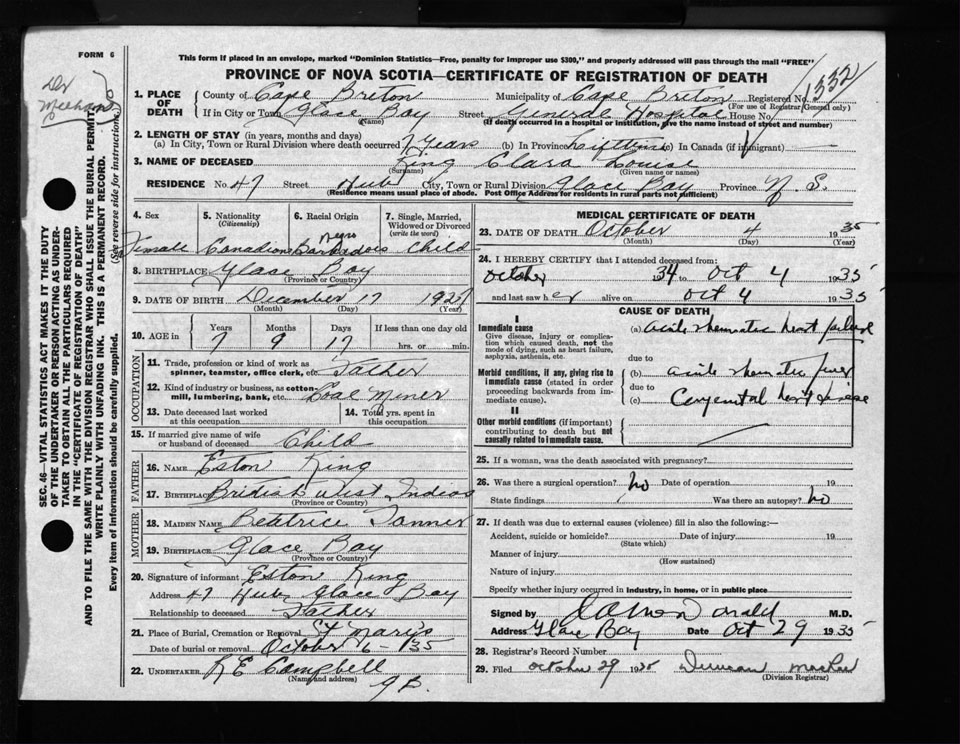 FORM 6
This form if placed in an envelope, marked "Dominion Statistics—Free, penalty for improper use $300," and properly addressed will pass through the mail "FREE"
PROVINCE OF NOVA SCOTIA—CERTIFICATE OF REGISTRATION OF DEATH
1. PLACE OF DEATH
County of Cape Breton Municipality of Cape Breton Registered No. 1332
(For use of Registrar General only)
If in City or Town Glace Bay Street General Hospital House No.
(Name) (If death occurred in a hospital or institution, give the name instead of street and number)
2. LENGTH OF STAY (in years, months and days)
(a) In City, Town or Rural Division where death occurred 7 Years (b) In Province Lifetime (c) In Canada (if immigrant)
3. NAME OF DECEASED King Clara Louise
(Surname) (Given name or names)
RESIDENCE No. 47 Street Hub City, Town or Rural Division Glace Bay Province N. S.
(Residence means usual place of abode. Post Office Address for residents in rural parts not sufficient)
4. Sex 5. Nationality (Citizenship) 6. Racial Origin 7. Single, Married, Widowed or Divorced (write the word)
Negro
Female Canadian Barbadois Child
8. BIRTHPLACE Glace Bay
(Province or Country)
9. DATE OF BIRTH December 17 1927
(Month) (Day) (Year)
10. AGE in Years Months Days If less than one day old
7 9 17 hrs. or min.
OCCUPATION
11. Trade, profession or kind of work as spinner, teamster, office clerk, etc. Father
12. Kind of industry or business, as cotton-mill, lumbering, bank, etc. Coal Miner
13. Date deceased last worked at this occupation
14. Total yrs. spent in this occupation
15. If married give name of wife or husband of deceased Child
FATHER
16. NAME Eston King
17. BIRTHPLACE British West Indies
(Province or Country)
MOTHER
18. MAIDEN NAME Beatrice Tanner
19. BIRTHPLACE Glace Bay
(Province or Country)
20. Signature of informant Eston King
Address 47 Hub, Glace Bay
Relationship to deceased Father
21. Place of Burial, Cremation or Removal St Mary's
Date of burial or removal October 6 - 1935
22. UNDERTAKER K E Campbell
(Name and address)
G B.
MEDICAL CERTIFICATE OF DEATH
23. DATE OF DEATH October 4 1935
(Month) (Day) (Year)
24. I HEREBY CERTIFY that I attended deceased from:
October 1934 to Oct 4 1935
and last saw her alive on Oct 4 1935
CAUSE OF DEATH
I
Immediate cause
Give disease, injury or complication which caused death, not the mode of dying, such as heart failure, asphyxia, asthenia, etc.
(a) acute rheumatic heart failure
due to
Morbid conditions, if any, giving rise to immediate cause (stated in order proceeding backwards from immediate cause).
(b) acute rheumatic fever
due to
(c) Congenital heart disease
II
Other morbid conditions (if important) contributing to death but not causally related to immediate cause.
25. If a woman, was the death associated with pregnancy?
26. Was there a surgical operation? No Date of operation 19
State findings Was there an autopsy? No
27. If death was due to external causes (violence) fill in also the following:—
Accident, suicide or homicide? Date of injury 19
(State which)
Manner of injury
(How sustained)
Nature of injury
Specify whether injury occurred in industry, in home, or in public place
Signed by M.D.
Address Glace Bay Date Oct 29 1935
28. Registrar's Record Number
29. Filed October 29 1935 Duncan
(Division Registrar)
SEC. 46—VITAL STATISTICS ACT MAKES IT THE DUTY
OF THE UNDERTAKER OR PERSON ACTING AS UNDERTAKER
TO OBTAIN ALL THE PARTICULARS REQUIRED
IN THE "CERTIFICATE OF REGISTRATION OF DEATH"
AND TO FILE THE SAME WITH THE DIVISION REGISTRAR WHO SHALL ISSUE THE BURIAL PERMIT.
WRITE PLAINLY WITH UNFADING INK. THIS IS A PERMANENT RECORD.
Every item of information should be carefully supplied. (See reverse side for instructions.)